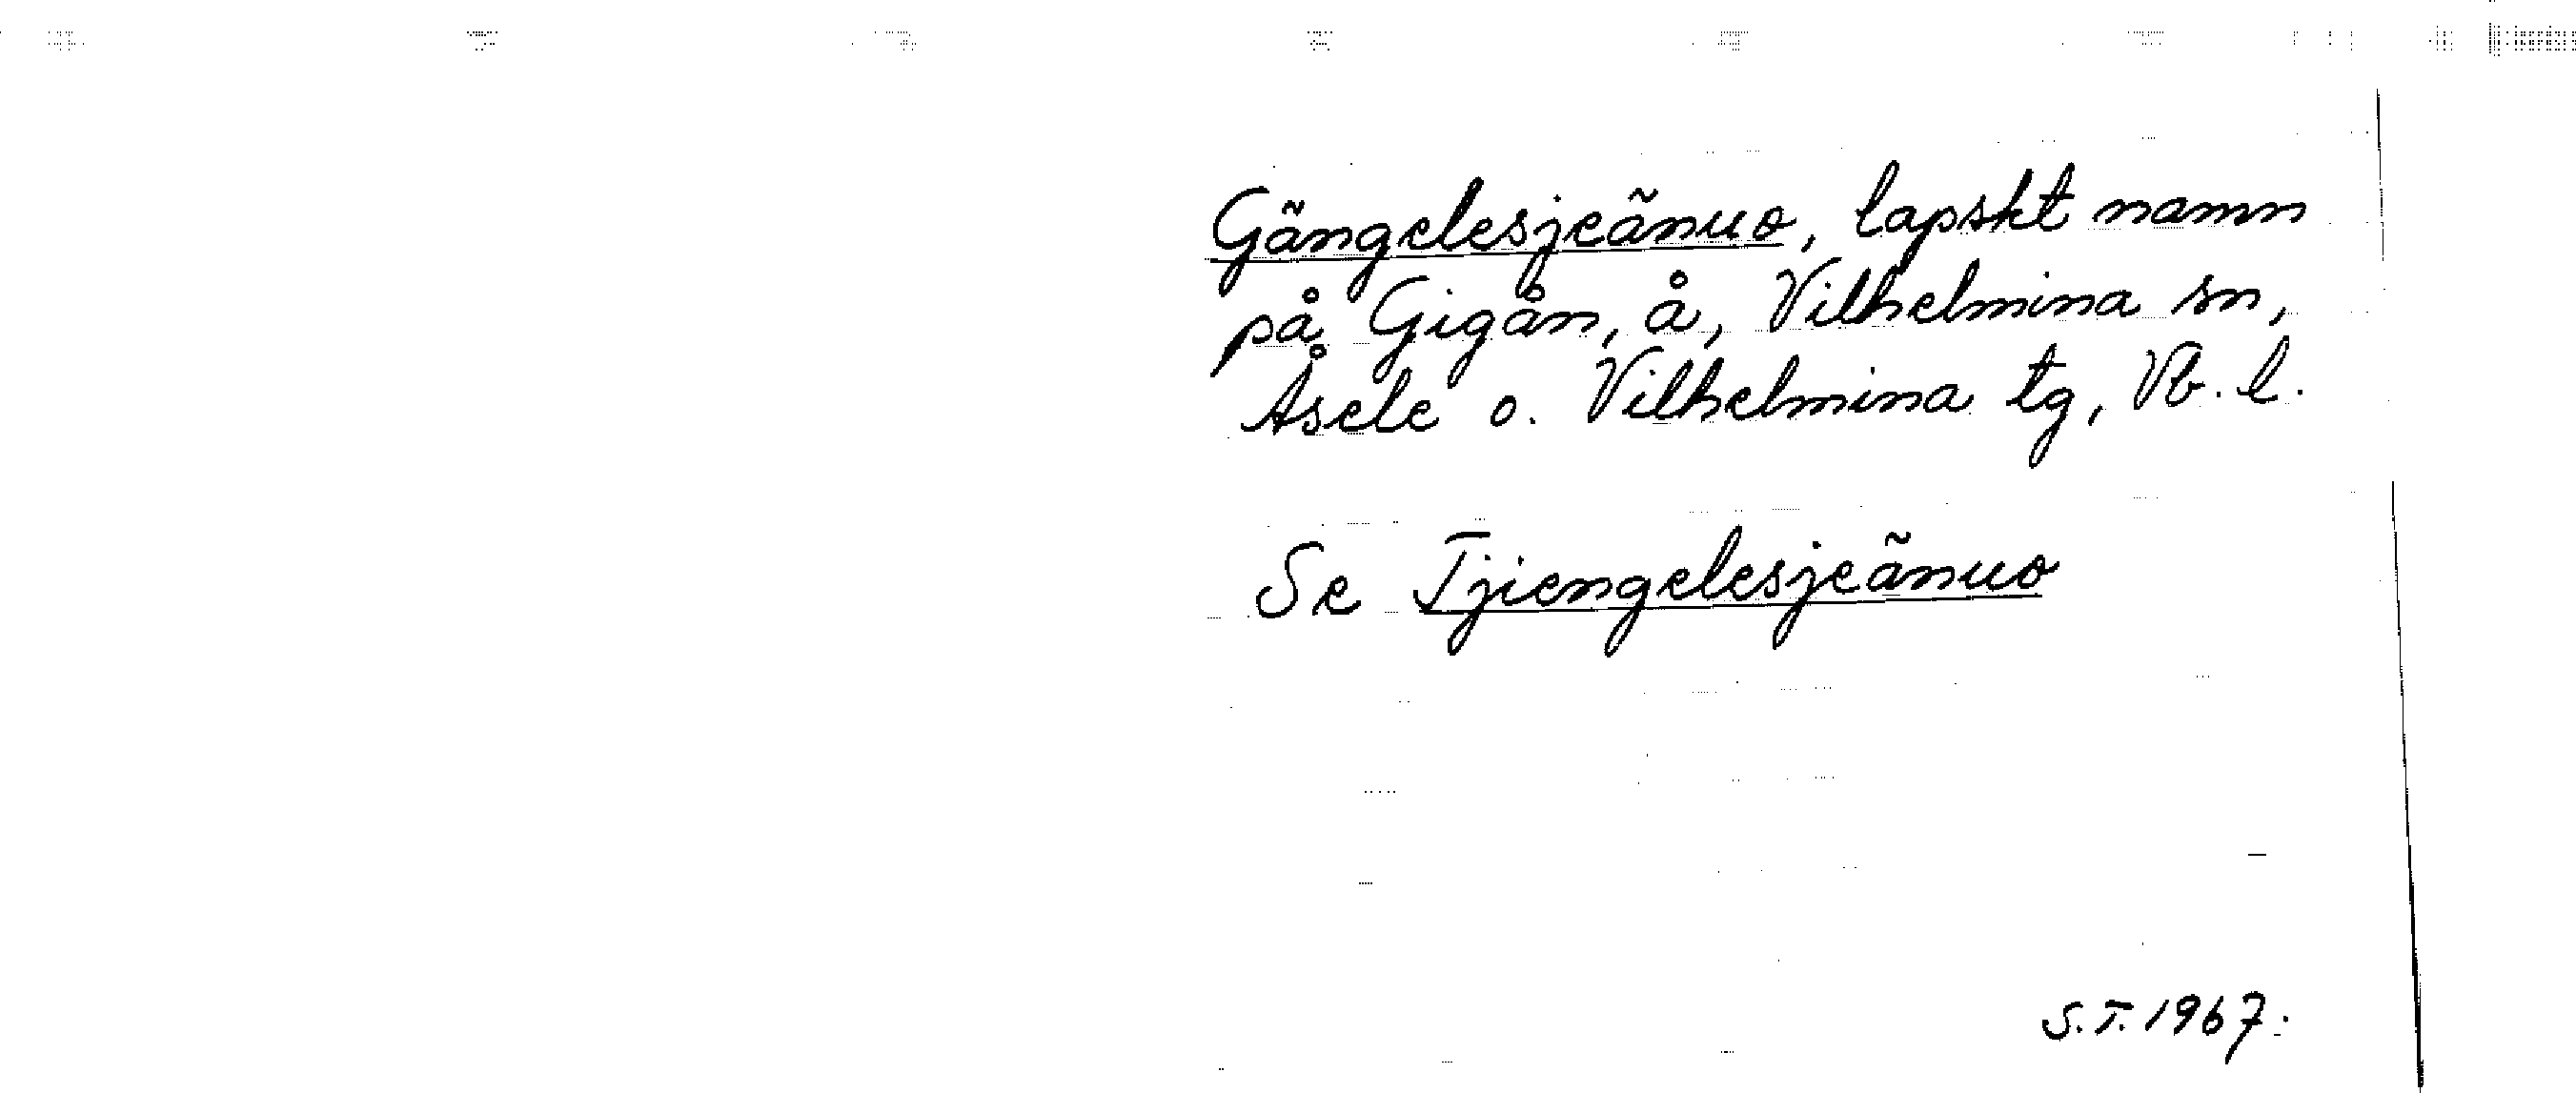 Gãngelesjeãnuo, lapskt namn
på Gigån, å, Vilhelmina sn,
Åsele o. Vilhelmina tg, Vb. l.
Se Tjiengelesjeãnuo
S.T. 1967.